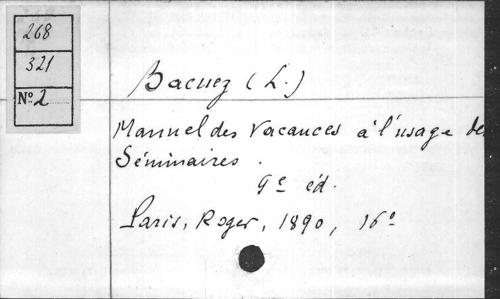 268
321
Nº 2
Bacuez (L.)
Manuel des Vacances à l'usage des
Séminaires.
9e éd.
Paris, Roger, 1890, 16º